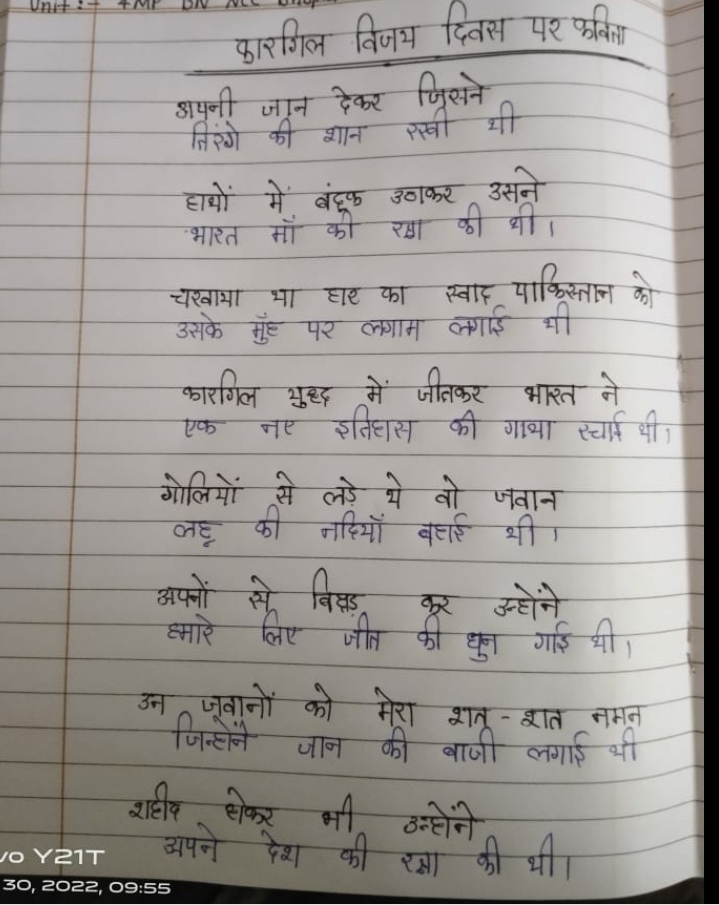 Unit :- 4 MP BN NCC Bhopal
कारगिल विजय दिवस पर कविता
अपनी जान देकर जिसने
तिरंगे की शान रखी थी
हाथों में बंदूक उठाकर उसने
भारत माँ की रक्षा की थी।
चखाया था हार का स्वाद पाकिस्तान को
उसके मुँह पर लगाम लगाई थी
कारगिल युध्द में जीतकर भारत ने
एक नए इतिहास की गाथा रचाई थी।
गोलियों से लड़े थे वो जवान
लहू की नदियाँ बहाई थी।
अपनों से बिछड़ कर उन्होंने
हमारे लिए जीत की धुन गाई थी।
उन जवानों को मेरा शत - शत नमन
जिन्होंने जान की बाजी लगाई थी
शहीद होकर भी उन्होंने
अपने देश की रक्षा की थी।
vo Y21T
30, 2022, 09:55